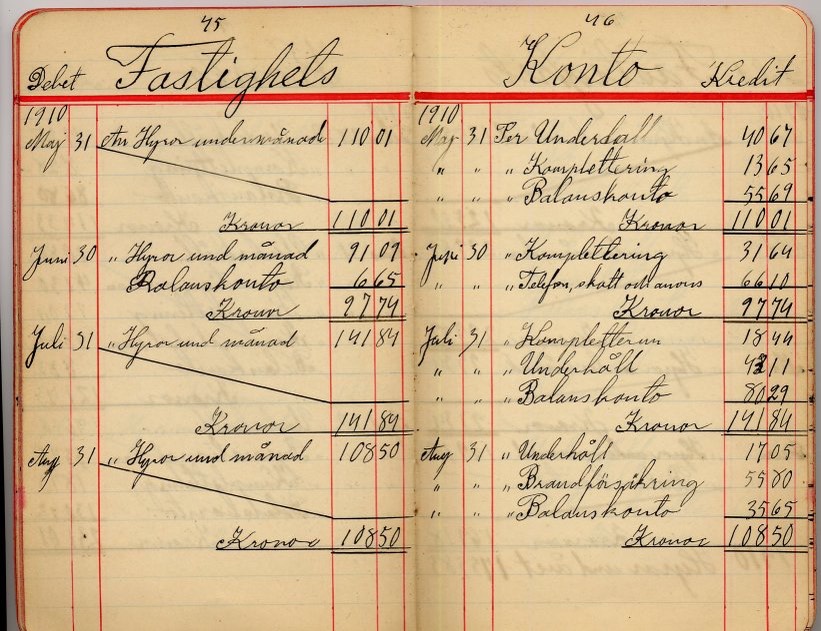 45
Debet Fastighets
1910
Maj 31 An Hyror under månad 110 01
Kronor 110 01
Juni 30 " Hyror und månad 91 09
Balanskonto 6 65
Kronor 97 74
Juli 31 " Hyror und månad 141 84
Kronor 141 84
Aug 31 " Hyror und månad 108 50
Kronor 108 50
46
Konto Kredit
1910
Maj 31 Per Underhåll 40 67
" " " Komplettering 13 65
" " " Balanskonto 55 69
Kronor 110 01
Juni 30 " Komplettering 31 64
" " " Telefon, skatt och anons 66 10
Kronor 97 74
Juli 31 " Kompletterin 18 44
" " " Underhåll 43 11
" " " Balanskonto 80 29
Kronor 141 84
Aug 31 " Underhåll 17 05
" " " Brandförsäkring 55 80
" " " Balanskonto 35 65
Kronor 108 50